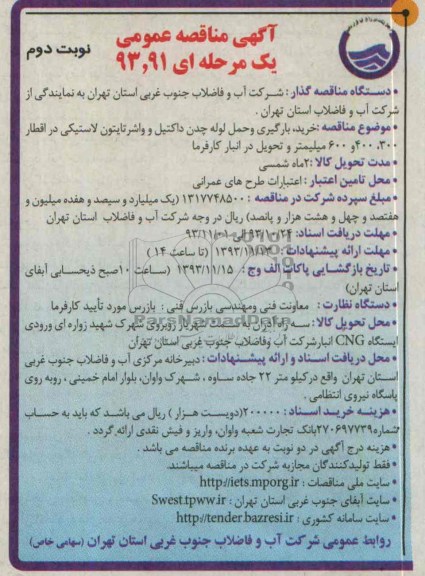 آگهی مناقصه عمومی
یک مرحله ای ۹۳,۹۱
نوبت دوم
• دستگاه مناقصه گذار : شرکت آب و فاضلاب جنوب غربی استان تهران به نمایندگی از
شرکت آب و فاضلاب استان تهران .
• موضوع مناقصه :خرید، بارگیری وحمل لوله چدن داکتیل و واشرتایتون لاستیکی در اقطار
۳۰۰، ۴۰۰و ۶۰۰ میلیمتر و تحویل در انبار کارفرما
• مدت تحویل کالا :۲ماه شمسی
• محل تامین اعتبار : اعتبارات طرح های عمرانی
• مبلغ سپرده شرکت در مناقصه : ۱۳۱۷۷۴۸۵۰۰ (یک میلیارد و سیصد و هفده میلیون و
هفتصد و چهل و هشت هزار و پانصد) ریال در وجه شرکت آب و فاضلاب استان تهران
• مهلت دریافت اسناد: ۹۳/۱۰/۲۴ الی ۹۳/۱۱/۰۱
• مهلت ارائه پیشنهادات : ۱۳۹۳/۱۱/۱۳ (تا ساعت ۱۴ )
• تاریخ بازگشایی پاکات الف وج : ۱۳۹۳/۱۱/۱۵ (ساعت ۱۰صبح ذیحسابی آبفای
استان تهران)
• دستگاه نظارت : معاونت فنی ومهندسی بازرس فنی : بازرس مورد تأیید کارفرما
• محل تحویل کالا : سه راه آدران ، جاده شهریار روبروی شهرک شهید زواره ای ورودی
ایستگاه CNG انبارشرکت آب وفاضلاب جنوب غربی استان تهران
• محل دریافت اسناد و ارائه پیشنهادات : دبیرخانه مرکزی آب و فاضلاب جنوب غربی
استان تهران واقع درکیلو متر ۲۲ جاده ساوه ، شهرک واوان، بلوار امام خمینی ، روبه روی
پاسگاه نیروی انتظامی .
• هزینه خرید اسناد : ۲۰۰۰۰۰(دویست هزار ) ریال می باشد که باید به حساب
شماره۲۷۰۶۹۷۷۳۹بانک تجارت شعبه واوان، واریز و فیش نقدی ارائه گردد .
• هزینه درج آگهی در دو نوبت به عهده برنده مناقصه می باشد .
• فقط تولیدکنندگان مجازبه شرکت در مناقصه میباشند.
• سایت ملی مناقصات : http://iets.mporg.ir
• سایت آبفای جنوب غربی استان تهران : Swest.tpww.ir
• سایت سامانه کشوری : http://tender.bazresi.ir
روابط عمومی شرکت آب و فاضلاب جنوب غربی استان تهران (سهامی خاص)